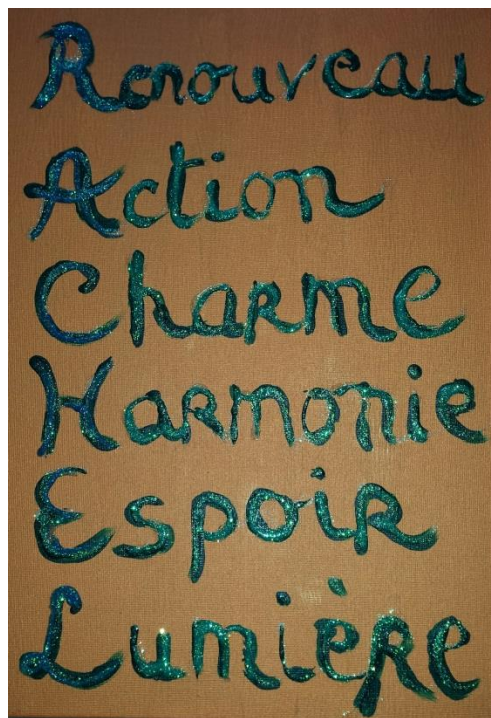 Renouveau
Action
Charme
Harmonie
Espoir
Lumière